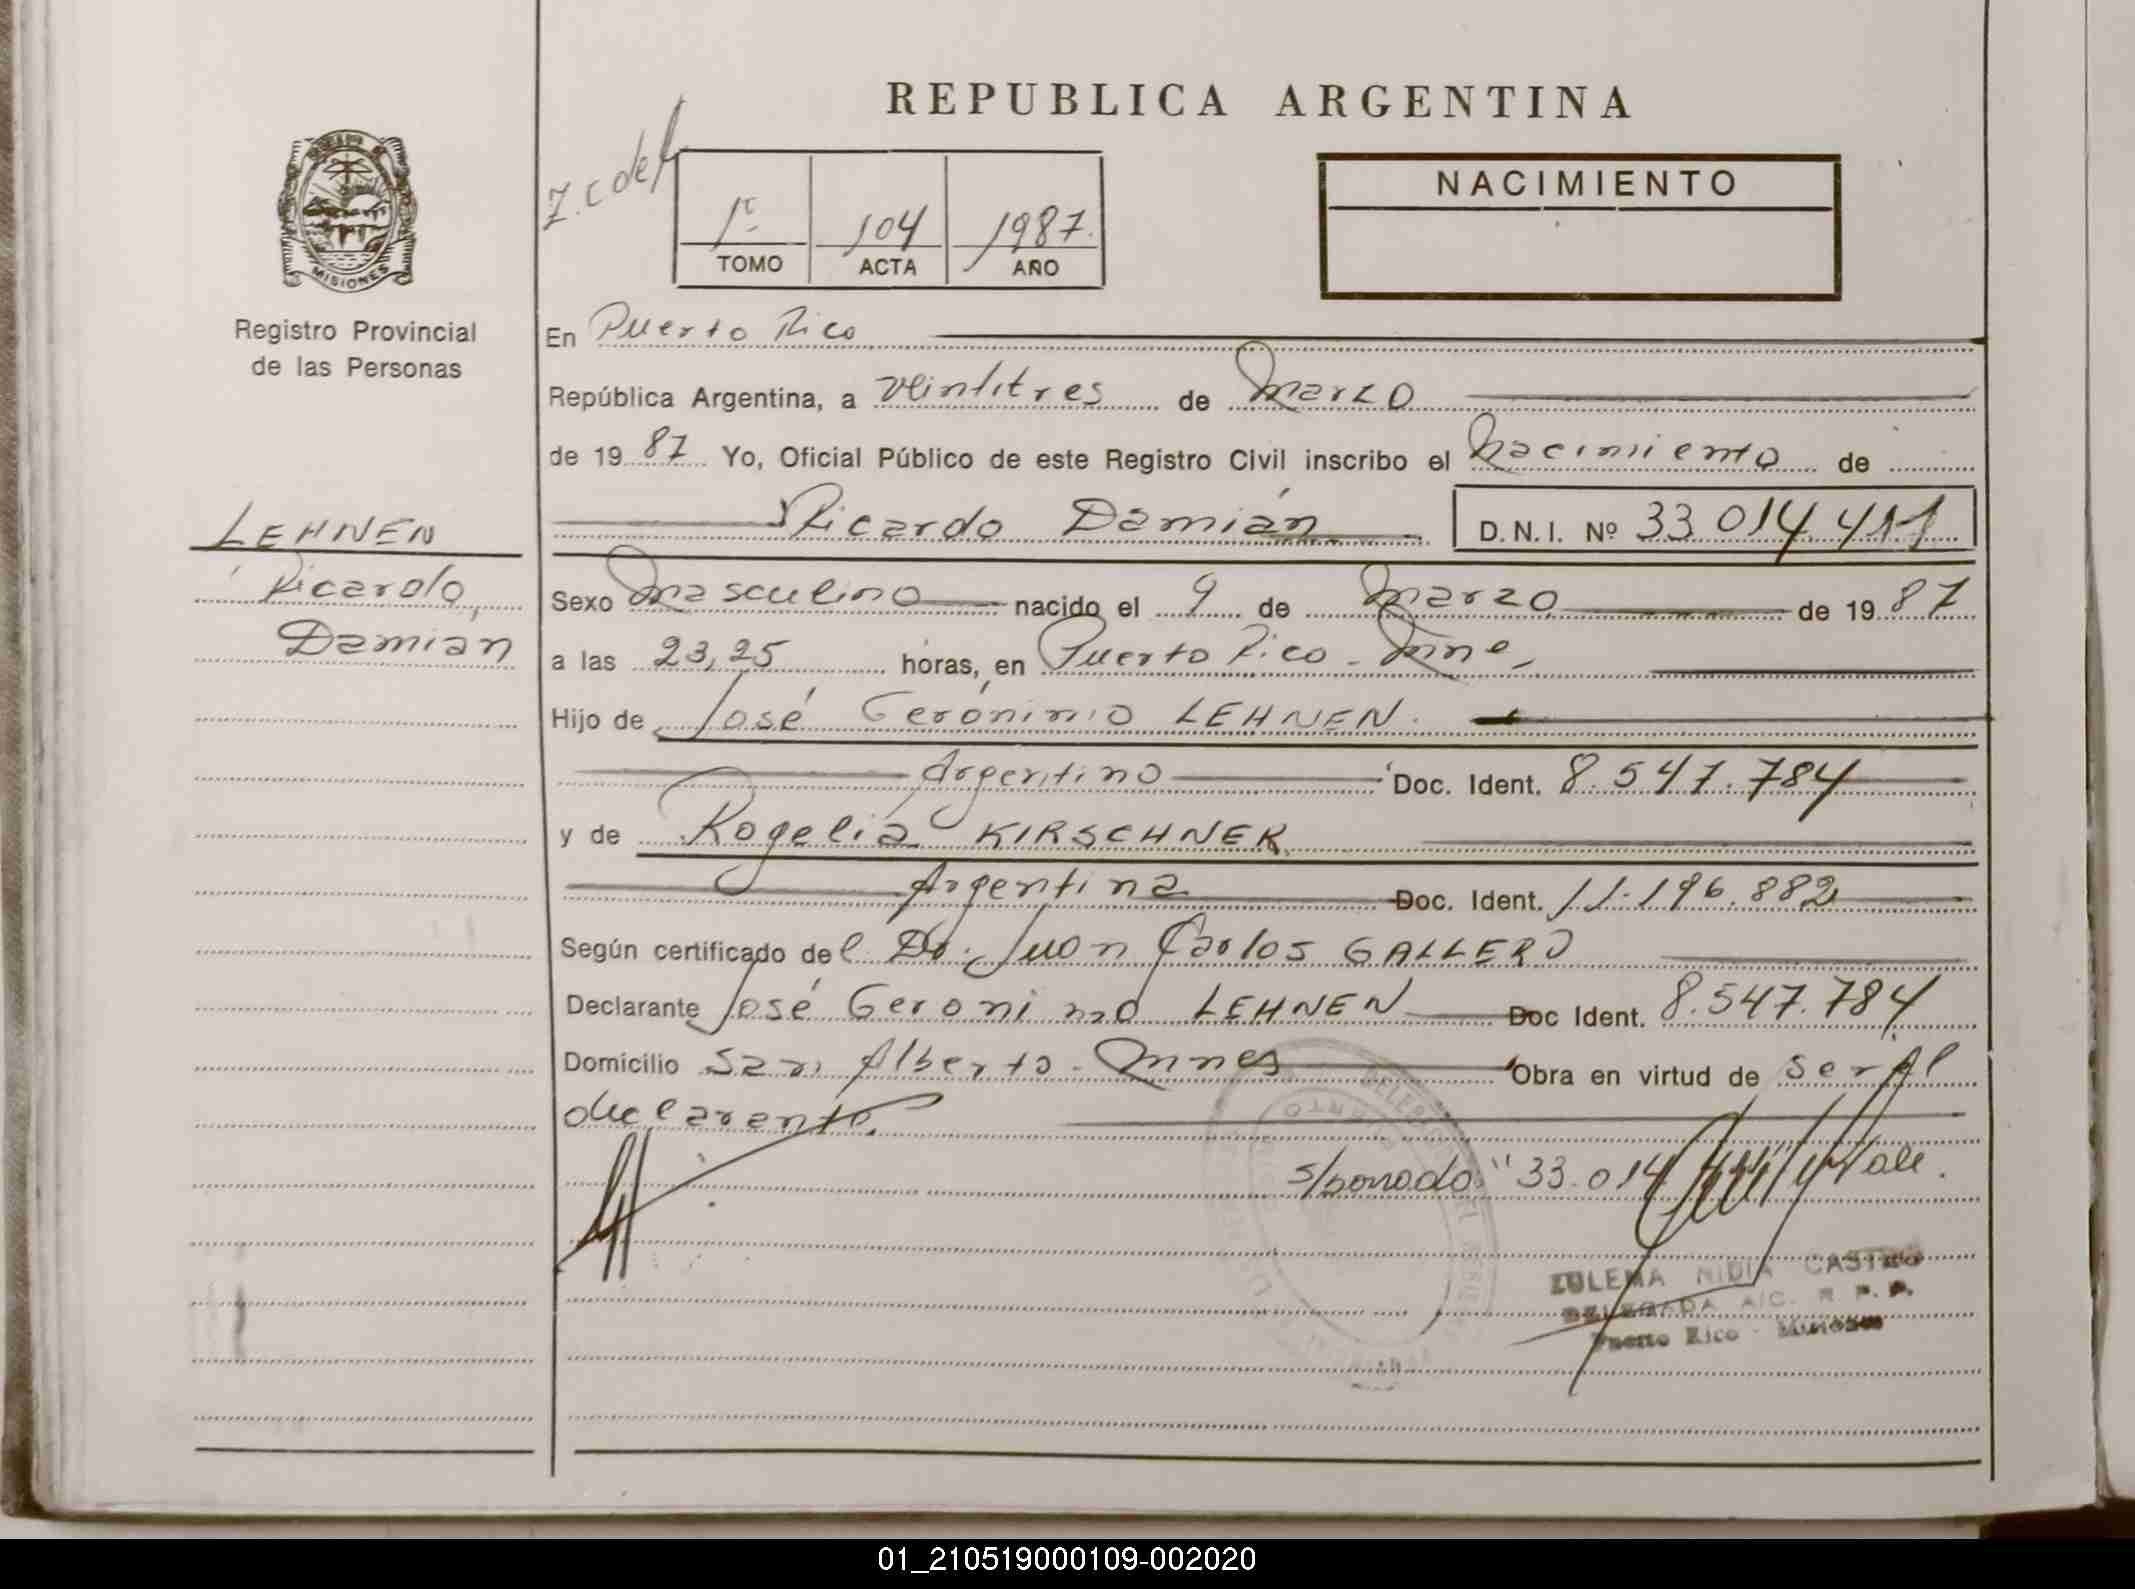 REPUBLICA ARGENTINA
MISIONES
Registro Provincial
de las Personas
1º 104 1987.
TOMO ACTA AÑO
NACIMIENTO
En Puerto Rico
República Argentina, a veintitres de Marzo
de 19 87 Yo, Oficial Público de este Registro Civil inscribo el Nacimiento de
Ricardo Damián D.N.I. Nº 33 014 411
LEHNEN
Ricardo,
Damian
Sexo Masculino nacido el 9 de Marzo de 19 87
a las 23,25 horas, en Puerto Rico - Mnes
Hijo de José Gerónimo LEHNEN.
Argentino Doc. Ident. 8.547.784
y de Rogelia KIRSCHNER.
Argentina Doc. Ident. 11.196.882
Según certificado del Dr. Juan Carlos GALLERO
Declarante José Geronimo LEHNEN Doc Ident. 8.547.784
Domicilio San Alberto - Mnes Obra en virtud de ser el
declarante.
s/borrado: "33.014 Vale.
ZULEMA NIDIA CASTRO
DELEGADA A/C. R. P. P.
Puerto Rico - Misiones
01_210519000109-002020